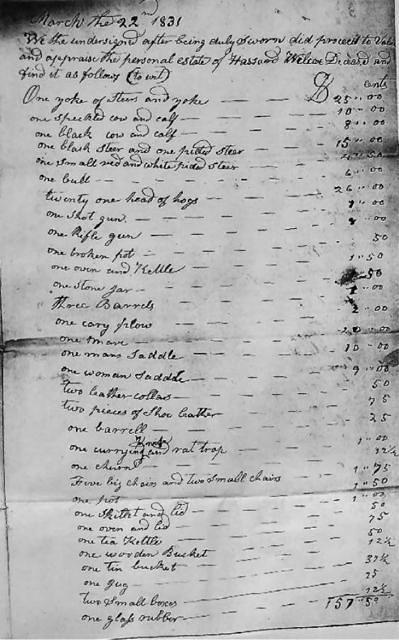 March the 22nd 1831
We the undersigned after being duly Sworn did proceed to Value
and appraise the personal estate of Hassard Wilcox Deceased and
find it as follows (to wit)
$ cents
One yoke of Steers and yoke 25 .. 00
one speckled cow and calf 10 .. 00
one black cow and calf 8 .. 00
one black steer and one pided steer 15 .. 00
one small red and white pided steer
one bull 6 .. 00
twenty one head of hogs 26 .. 00
one shot gun
one Rifle gun
one broken pot 50
one oven and Kettle 1 .. 50
one stone Jar 50
three Barrels
one cary plow 2 .. 00
one mare 20 .. 00
one mans Saddle 10 .. 00
one woman Saddle 9 .. 00
two leather collars 50
two pieces of Shoe leather 75
one barrell 25
one currying Knife and rat trap 1 .. 00
one churn 12½
Five big chairs and two Small chairs 1 .. 75
one pot 1 .. 50
one skillet and lid 1 .. 00
one oven and lid 50
one tea Kettle 75
one wooden Bucket 50
one tin bucket 12½
one Jug 37½
two small boxes 25
one glass rubber 12½
157 .. 50